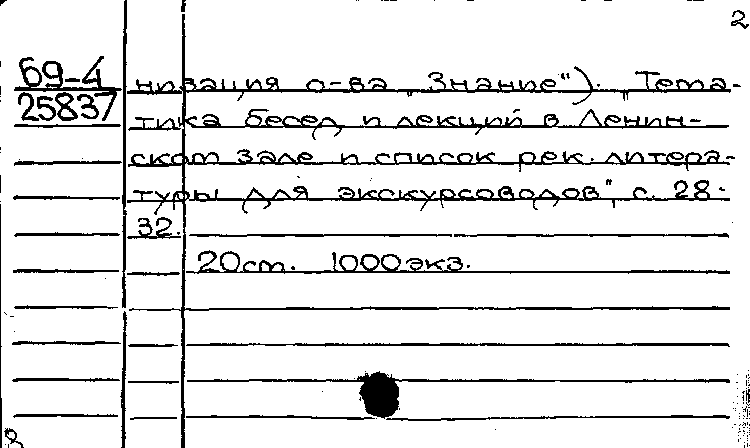 2
Б9-4
25837
низация о-ва „Знание"). „Тема-
тика бесед и лекций в Ленин-
ском зале и список рек. литера-
туры для экскурсоводов", с. 28-
32.
20см. 1000экз.